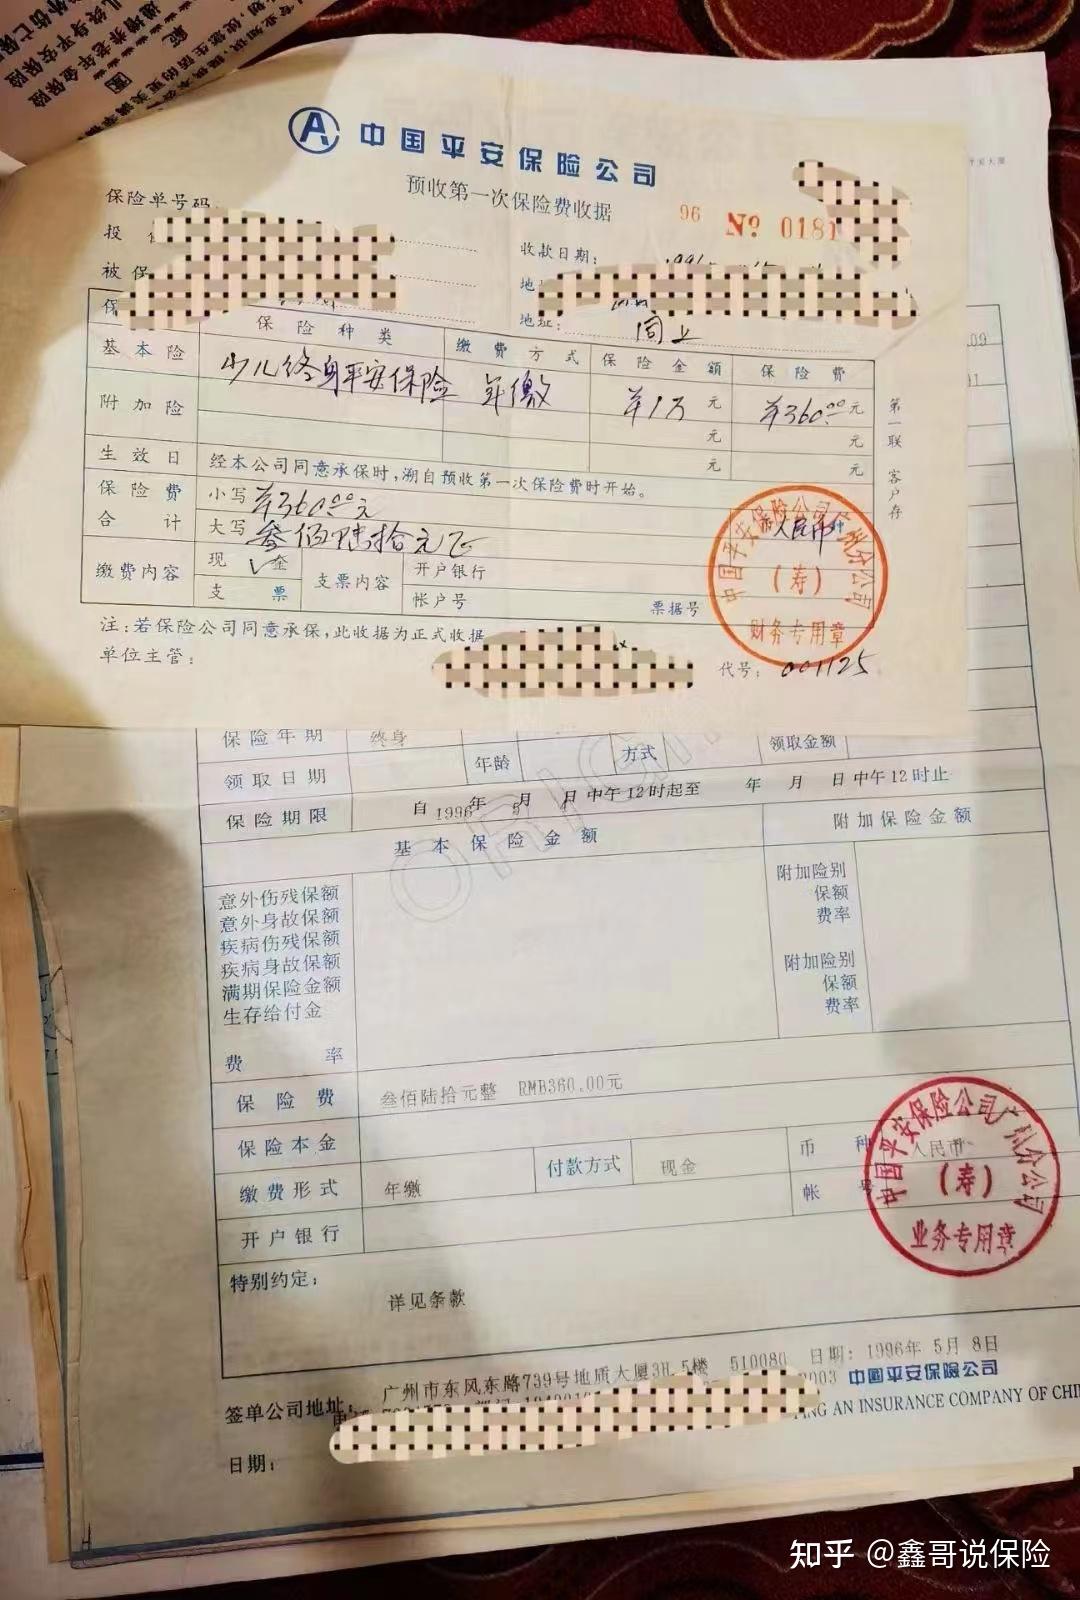 终身平安保险
递增养老年金保险
中国平安保险公司
预收第一次保险费收据
96 No 0181
保险单号码
收款日期:
投
被保
地址: 同上
保险种类 缴费方式 保险金额 保险费
基本险 少儿终身平安保险 年缴 ¥1万元 ¥360.00元
附加险 元 元
元 元
生效日 经本公司同意承保时,溯自预收第一次保险费时开始。
保险费合计 小写 ¥360.00元
大写 叁佰陆拾元正 人民币
缴费内容 现金 √ 支票内容 开户银行
支票 帐户号 票据号
第一联 客户存
中国平安保险公司广州分公司
(寿)
财务专用章
注:若保险公司同意承保,此收据为正式收据
单位主管:
代号: 001125
保险年期 终身 年龄 方式 领取金额
领取日期
保险期限 自1996年5月 日中午12时起至 年 月 日中午12时止
基本保险金额 附加保险金额
意外伤残保额 附加险别
意外身故保额 保额
疾病伤残保额 费率
疾病身故保额 附加险别
满期保险金额 保额
生存给付金 费率
费率
保险费 叁佰陆拾元整 RMB360.00元
保险本金 币种 人民币
缴费形式 年缴 付款方式 现金 帐号
开户银行
中国平安保险公司广州分公司
(寿)
业务专用章
特别约定:
详见条款
日期: 1996年 5月 8日
签单公司地址: 广州市东风东路739号地质大厦3H.5楼 510080
中国平安保险公司
AN INSURANCE COMPANY OF CHI
日期:
知乎 @鑫哥说保险